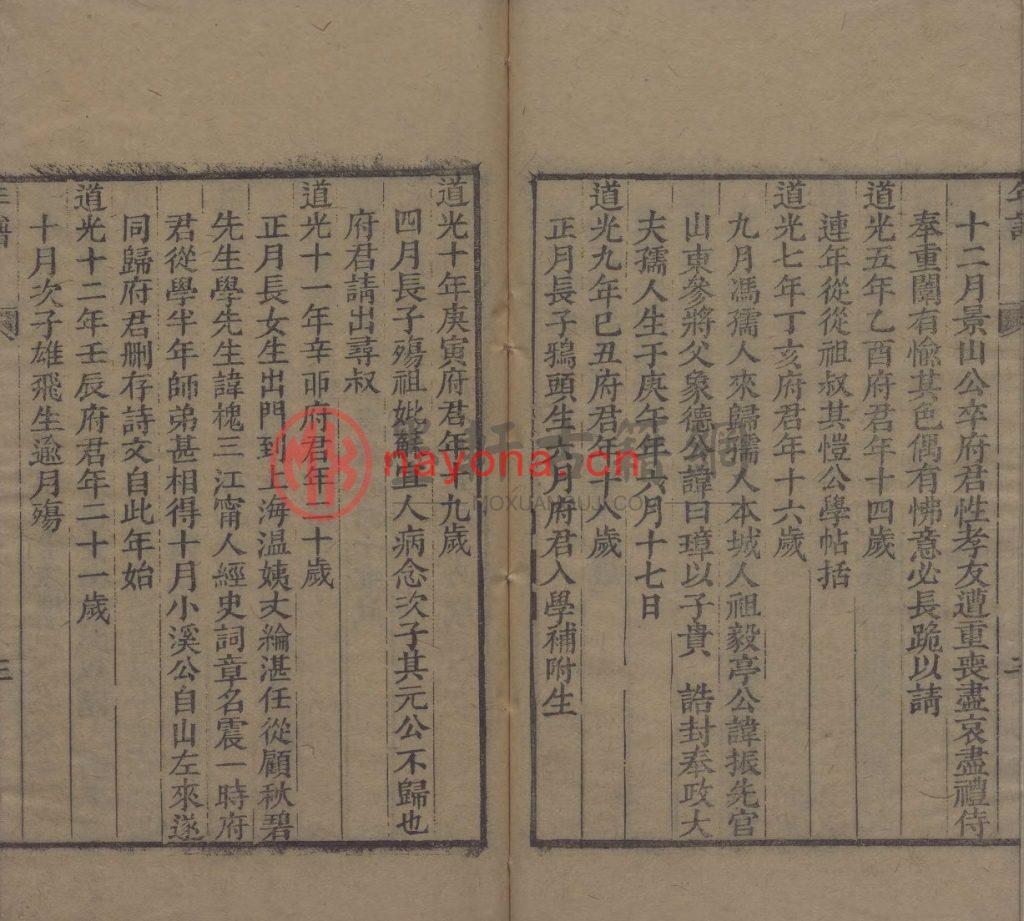 年譜
二
十二月景山公卒府君性孝友遭重喪盡哀盡禮侍
奉重闈有愉其色偶有怫意必長跪以請
道光五年乙酉府君年十四歲
連年從從祖叔其愷公學帖括
道光七年丁亥府君年十六歲
九月馮孺人來歸孺人本城人祖毅亭公諱振先官
山東參將父象德公諱曰璋以子貴 誥封奉政大
夫孺人生于庚午年六月十七日
道光九年己丑府君年十八歲
正月長子鴉頭生 月府君入學補附生
道光十年庚寅府君年十九歲
四月長子殤祖妣蘇宜人病念次子其元公不歸也
府君請出尋叔
道光十一年辛卯府君年二十歲
正月長女生出門到上海溫姨丈綸湛任從顧秋碧
先生學先生諱槐三江甯人經史詞章名震一時府
君從學半年師弟甚相得十月小溪公自山左來遂
同歸府君刪存詩文自此年始
道光十二年壬辰府君年二十一歲
十月次子雄飛生逾月殤
年譜
三
nayona.cn